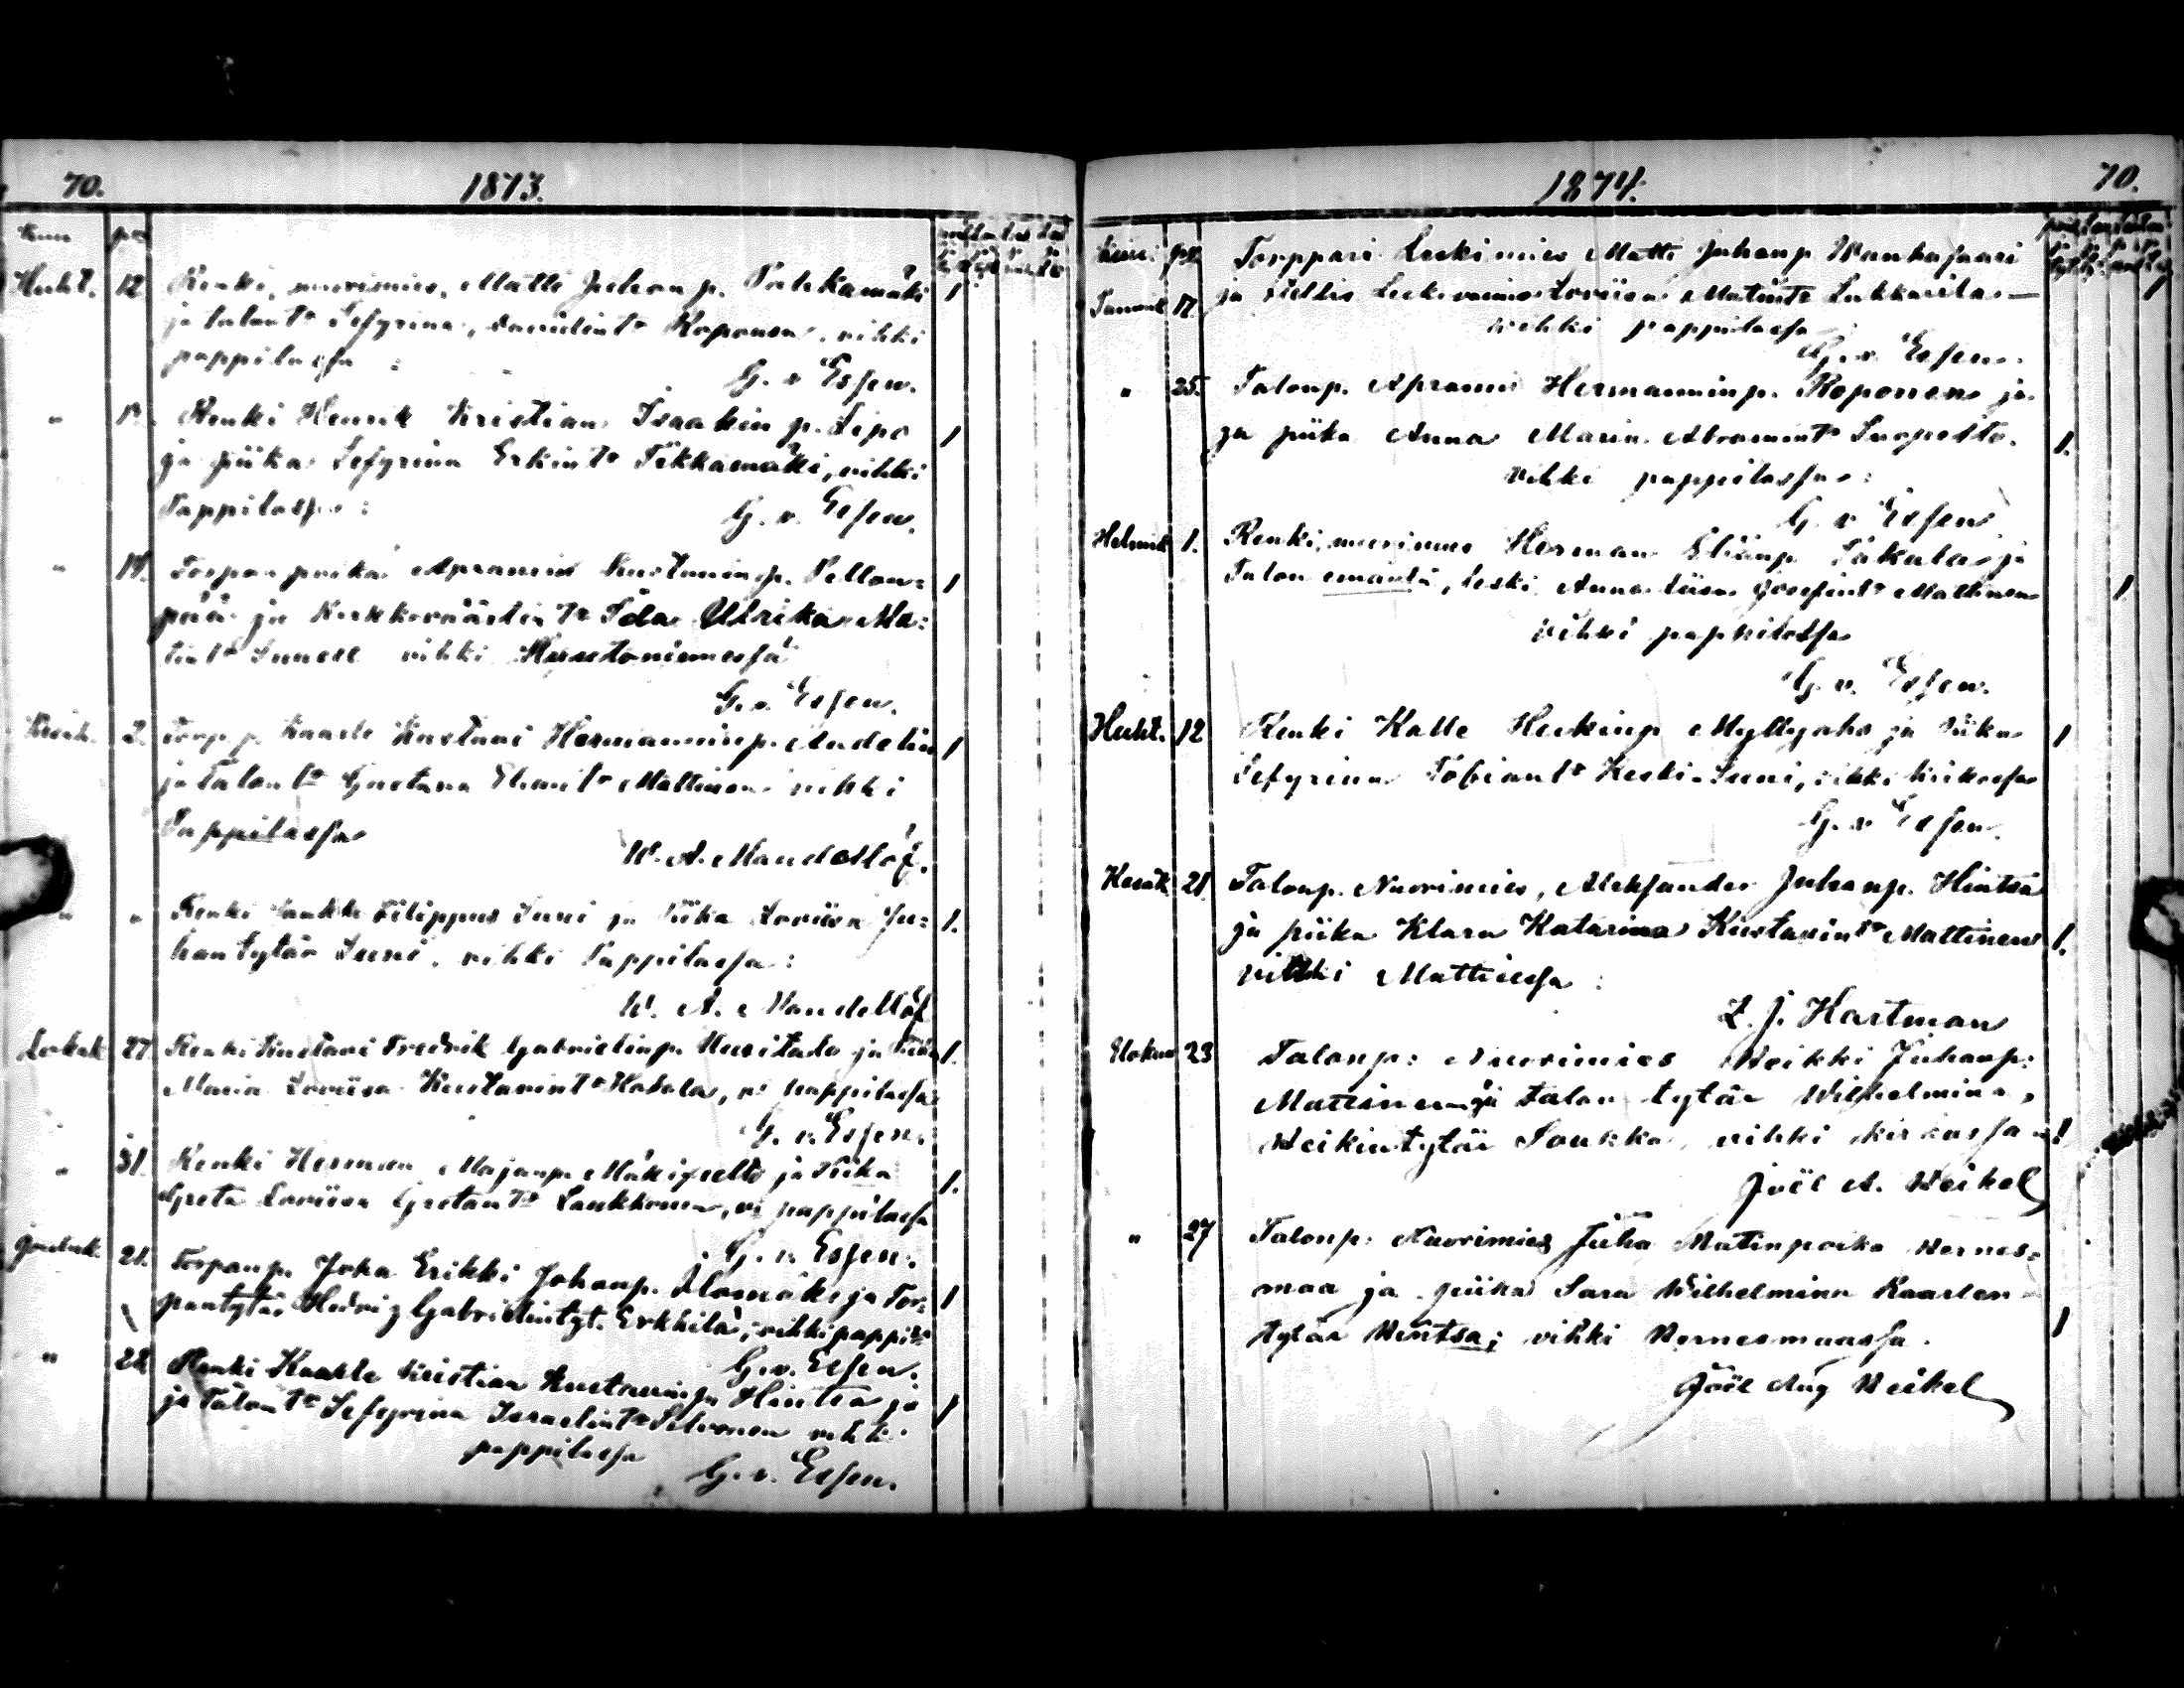 70. 1873.
Huht. 12 Renki, nuorimies, Matti Juhan p. Pahkamäki 1
ja talont:r Sefyrina, Davidint:r Koponen, vihki
pappilassa :
G. v Essen.
" Renki Henrik Kristian Isaakin p. Lipo 1
ja piika Sefyrina Erkint:r Tikkamäki, vihki
Pappilassa :
G. v. Essen.
" 19. Torpan poika Apramis Kustavinp. Pellon= 1
pää ja Kirkkoväärtin t:r Ida Ulrika Ma=
tint:r Sunell vihki
G. v. Essen.
Kesäk. 2. Torp. p. Kaarle Kustavi Hermanninp. Andelin 1
ja Talont:r Gustava Eliant:r Mattinen vihki
Pappilassa
W. A. Mandellöf.
" " Renki Filippus Luni ja Piika Loviisa Ju= 1.
hantytär Luni, vihki Pappilassa :
W. A. Mandellöf
Lokak 27 Renki Kustavi Fredrik Gabrielinp. Uusitalo ja Piika 1.
Maria Loviisa Kustavint:r Hakala, v: pappilassa
G. v. Essen.
" 31. Renki Herman Majanp. Mäkipelto ja Piika 1.
Greta Loviisa Gretant:r Laukkonen, vi pappilassa
G. v. Essen.
Jouluk 21. Torpanp. Joha Erikki Johanp. Alamäki ja Tor= 1
pantytär Hedvig Gabrielintyt. Erkkilä, vihki pappil:
G. v. Essen.
" 28 Renki Kaarle Kristian Kustavinp. Hintsa ja 1
ja Talont:r Sefyrina Israelint:r Silvonen vihki
pappilassa
G. v. Essen.
1874. 70.
Kuu: pv.
Tammik 17. Torppari Leskimies Matti Juhanp Wankasaari
ja Leskivaimo Loviisa Matint:r Lukkarila —
vihki pappilassa
G. v. Essen.
" 25. Talonp. Apramis Hermanninp. Koponen ja
ja piika Anna Maria Abramint:r Luopesto. 1.
vihki pappilassa :
G. v Essen
Helmik 1. Renki, nuorimies Herman Eliänp Takala ja
Talon emäntä, leski Anna Liisa Josefint:r Mattinen 1
vihki pappilassa
G. v. Essen.
Huht. 12 Renki Kalle Heikinp Myllyaho ja Piika 1
Sefyrina Tobiant:r Keski-Luni, vihki kirkossa
G. v Essen.
Kesäk 21 Talonp. Nuorimies, Aleksander Juhanp. Hintsa
ja piika Klara Katarina Kustavint:r Mattinen 1.
vihki Mattilassa :
L. J. Hartman
Elokuu 23 Talonp: Nuorimies Heikki Juhanp:
Mattinen ja talon tytär Wilhelmina,
Heikintytär Soukka, vihki kirkossa 1
Joël A. Heikel
" 27 Talonp: Nuorimies Juha Matinpoika Hernes=
maa ja piika Sara Wilhelmina Kaarlen=
tytär Hintsa; vihki Hernesmaassa. 1
Joël Aug Heikel